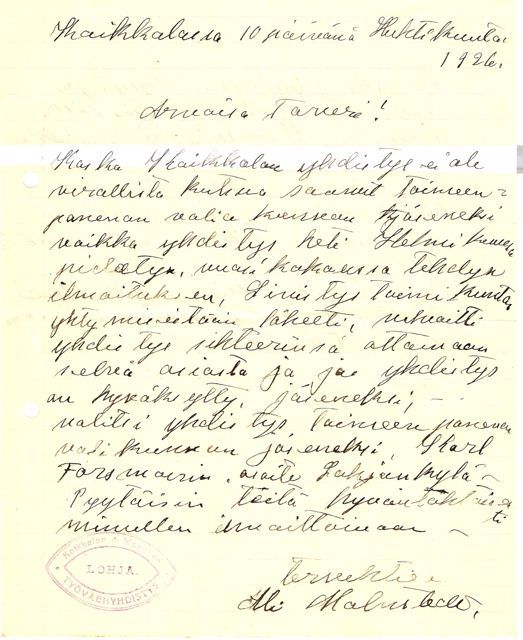 Kaikkalassa 10 päivänä Huhtikuuta
1926.
Arvoisa Toveri!
Koska Kaikkolan yhdistys ei ole
virallista kutsua saanut toimeen=
panevan valiakunnan jäseneksi
vaikka yhdistys heti Helmikuussa
pidetyn, vuosikokouksessa tehdyn
ilmoituksen, Sivistystoimikuntan
yhtymisestään lähetti, velvoitti
yhdistys sihteerinsä ottamaan
selvää asiasta ja jos yhdistys
on hyväksytty, jäseneksi, —
valitsi yhdistys, toimeenpanevan
valikunnan jäseneksi, Karl
Forsmanin. osoite Lohjankylä —
Pyytäisin teitä hyväntahtoisesti
minullen ilmoittamaan —
LOHJA.
TYÖVÄENYHDISTYS
tervehtien
Malmstedt.